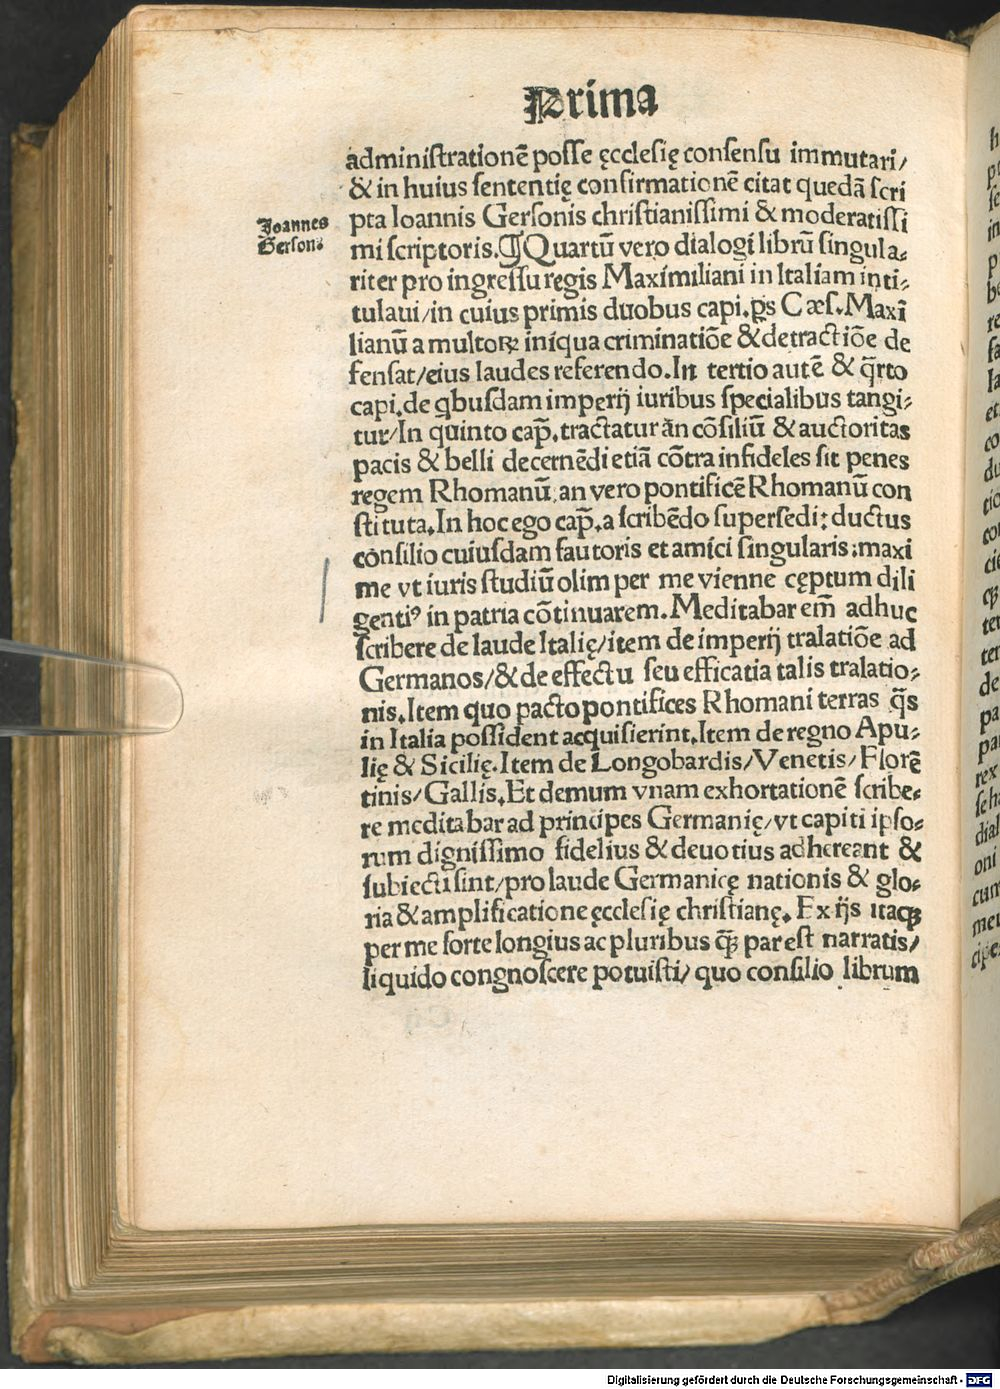 Prima
administrationē posse ęcclesię consensu immutari/
& in huius sententię confirmationē citat quedā scri
Joannes
Gerson⁹
pta Ioannis Gersonis christianissimi & moderatissi
mi scriptoris. ¶ Quartū vero dialogi librū singula⸗
riter pro ingressu regis Maximiliani in Italiam inti⸗
tulaui/in cuius primis duobus capi. ꝓs Cæs. Maxi
lianū a multoꝝ iniqua criminatiōe & detractiōe de
fensat/eius laudes referendo. In tertio autē & q̄rto
capi. de qbusdam imperij iuribus specialibus tangi⸗
tur/In quinto cap̄. tractatur ān cōsiliū & auctoritas
pacis & belli decernēdi etiā cōtra infideles sit penes
regem Rhomanū: an vero pontificē Rhomanū con
stituta. In hoc ego cap̄. a scribēdo supersedi: ductus
consilio cuiusdam fautoris et amici singularis: maxi
me vt iuris studiū olim per me vienne cęptum dili
genti⁹ in patria cōtinuarem. Meditabar em̄ adhuc
scribere de laude Italię/item de imperij tralatiōe ad
Germanos/& de effectu seu efficatia talis tralatio⸗
nis. Item quo pacto pontifices Rhomani terras q̄s
in Italia possident acquisierint. Item de regno Apu⸗
lię & Sicilię. Item de Longobardis/Venetis/Florē
tinis/Gallis. Et demum vnam exhortationē scribe⸗
re meditabar ad principes Germanię/vt capiti ipso⸗
rum dignissimo fidelius & deuotius adhereant &
subiecti sint/pro laude Germanicę nationis & glo⸗
ria & amplificatione ęcclesię christianę. Ex ijs itaqꝫ
per me forte longius ac pluribus q̄ꝫ par est narratis/
liquido congnoscere potuisti/ quo consilio librum
Digitalisierung gefördert durch die Deutsche Forschungsgemeinschaft - DFG